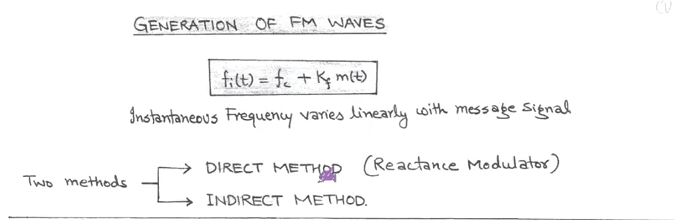 GENERATION OF FM WAVES
fi(t) = fc + Kf m(t)
Instantaneous Frequency varies linearly with message signal
Two methods
DIRECT METHOD (Reactance Modulator)
INDIRECT METHOD.